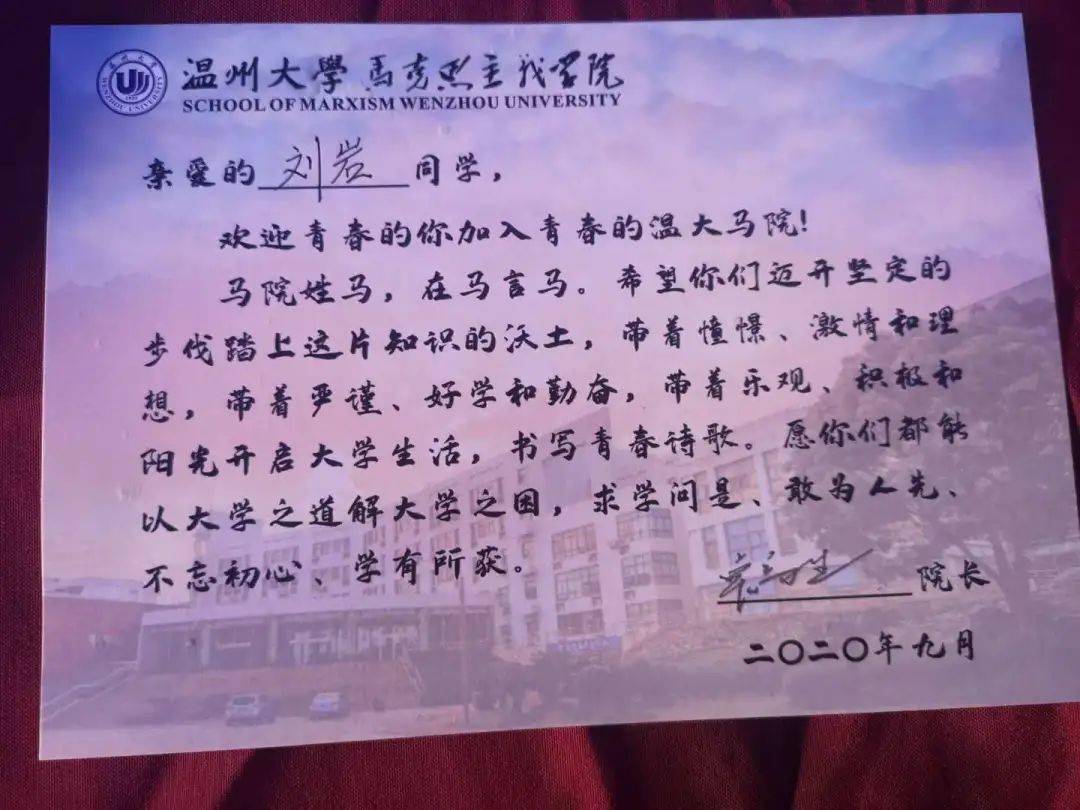 温州大學 马克思主义学院
SCHOOL OF MARXISM WENZHOU UNIVERSITY
亲爱的 刘岩 同学，
欢迎青春的你加入青春的温大马院！
马院姓马，在马言马。希望你们迈开坚定的
步伐踏上这片知识的沃土，带着憧憬、激情和理
想，带着严谨、好学和勤奋，带着乐观、积极和
阳光开启大学生活，书写青春诗歌。愿你们都能
以大学之道解大学之困，求学问是、敢为人先、
不忘初心、学有所获。
院长
二〇二〇年九月